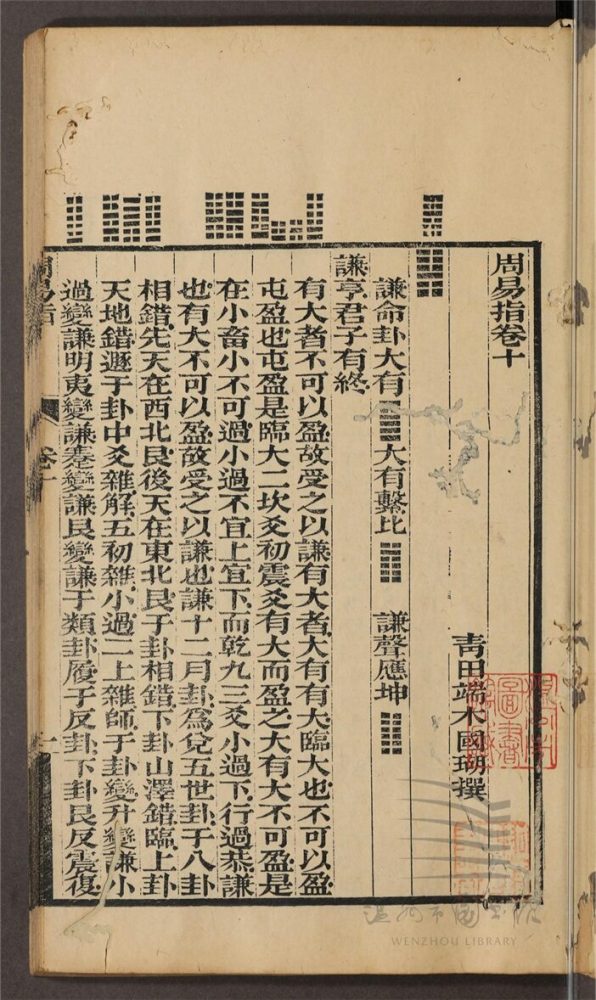 周易指卷十
青田端木國瑚撰
謙命卦大有䷍大有繫比䷇ 謙聲應坤䷁
謙亨君子有終
有大者不可以盈故受之以謙有大者大有有大臨大也不可以盈
屯盈也屯盈是臨大二坎爻初震爻有大而盈之大有大不可盈是
在小畜小不可過小過不宜上宜下而乾九三爻小過下行過恭謙
也有大不可以盈故受之以謙也謙十二月卦爲兌五世卦于八卦
相錯先天在西北艮後天在東北艮于卦相錯下卦山澤錯臨上卦
天地錯遯于卦中爻雜解五初雜小過二上雜師于卦變升變謙小
過變謙明夷變謙蹇變謙艮變謙于類卦履于反卦下卦艮反震復
周易指 卷十 一
温州市圖書館
WENZHOU LIBRARY